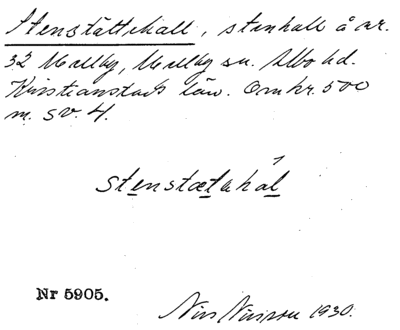 Stenstättehall, stenhall å ar.
32 Mellby, Mellby sn. Albo hd.
Kristianstads län. Omkr. 500
m. SV. 4.
stenstætahal
Nr 5905.
Nils Nilsson 1930.